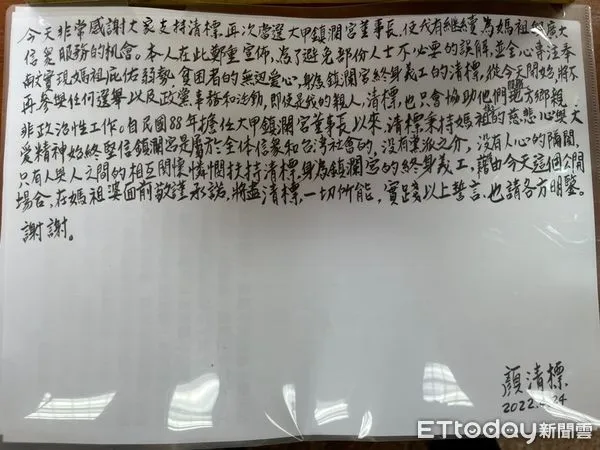 今天非常感謝大家支持清標再次當選大甲鎮瀾宮董事長,使我有繼續為媽祖與廣大
信眾服務的機會。本人在此鄭重宣佈,為了避免部份人士不必要的誤解並全心專注奉
獻實現媽祖庇佑弱勢、貧困者的無邊愛心,身為鎮瀾宮終身義工的清標,從今天開始,將不
再參與任何選舉以及政黨事務和活動,即使是我的親人,清標,也只會協助他們地方鄉親
非政治性工作。自民國88年擔任大甲鎮瀾宮董事長以來,清標秉持媽祖的慈悲心與大
愛精神始終堅信鎮瀾宮是屬於全体信眾和台灣社會的,沒有黨派之介,沒有人心的隔閡,
只有人與人之間的相互關懷憐憫扶持清標,身為鎮瀾宮的終身義工,藉由今天這個公開
場合,在媽祖婆面前敬謹承諾,將盡清標,一切所能,實踐以上誓言,也請各方明鑒。
謝謝。
顏清標
2022. .24
ETtoday新聞雲